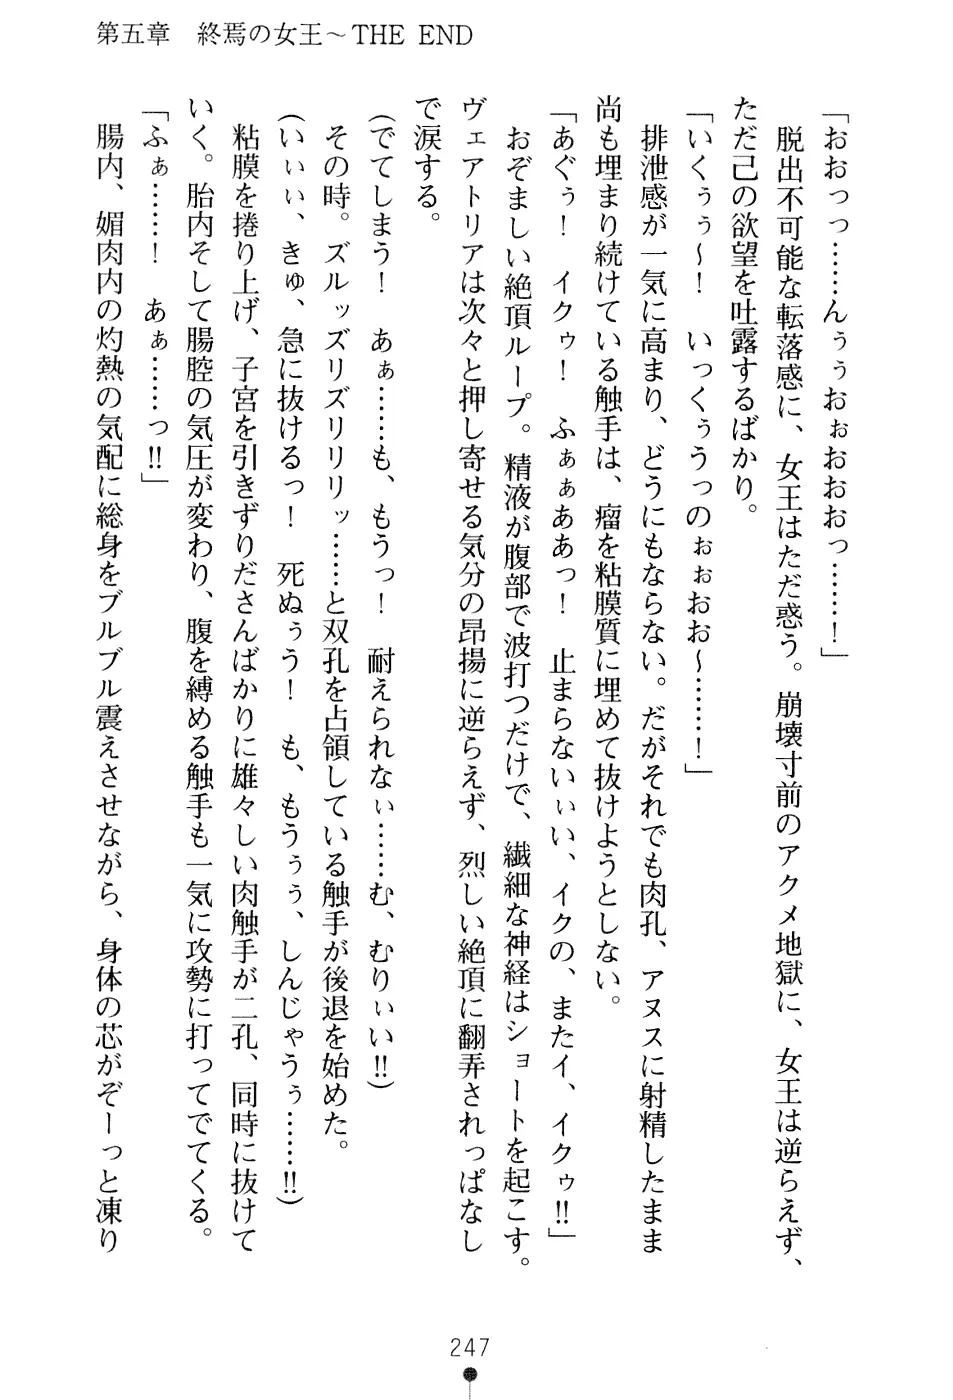 第五章　終焉の女王～THE END
「おおっっ……んぅぅおぉおおおっ……！」
　脱出不可能な転落感に、女王はただ惑う。崩壊寸前のアクメ地獄に、女王は逆らえず、
ただ己の欲望を吐露するばかり。
「いくぅぅ～！　いっくぅうっのぉぉおお～……！」
　排泄感が一気に高まり、どうにもならない。だがそれでも肉孔、アヌスに射精したまま
尚も埋まり続けている触手は、瘤を粘膜質に埋めて抜けようとしない。
「あぐぅ！　イクゥ！　ふぁぁああっ！　止まらないぃい、イクの、またイ、イクゥ!!」
　おぞましい絶頂ループ。精液が腹部で波打つだけで、繊細な神経はショートを起こす。
ヴェアトリアは次々と押し寄せる気分の昂揚に逆らえず、烈しい絶頂に翻弄されっぱなし
で涙する。
（でてしまう！　あぁ……も、もうっ！　耐えられなぃ……む、むりぃい!!）
　その時。ズルッズリズリリリッ……と双孔を占領している触手が後退を始めた。
（いぃぃ、きゅ、急に抜けるっ！　死ぬぅう！　も、もうぅぅ、しんじゃうぅ……!!）
　粘膜を捲り上げ、子宮を引きずりださんばかりに雄々しい肉触手が二孔、同時に抜けて
いく。胎内そして腸腔の気圧が変わり、腹を縛める触手も一気に攻勢に打ってでてくる。
「ふぁ……！　あぁ……っ!!」
　腸内、媚肉内の灼熱の気配に総身をブルブル震えさせながら、身体の芯がぞーっと凍り
247